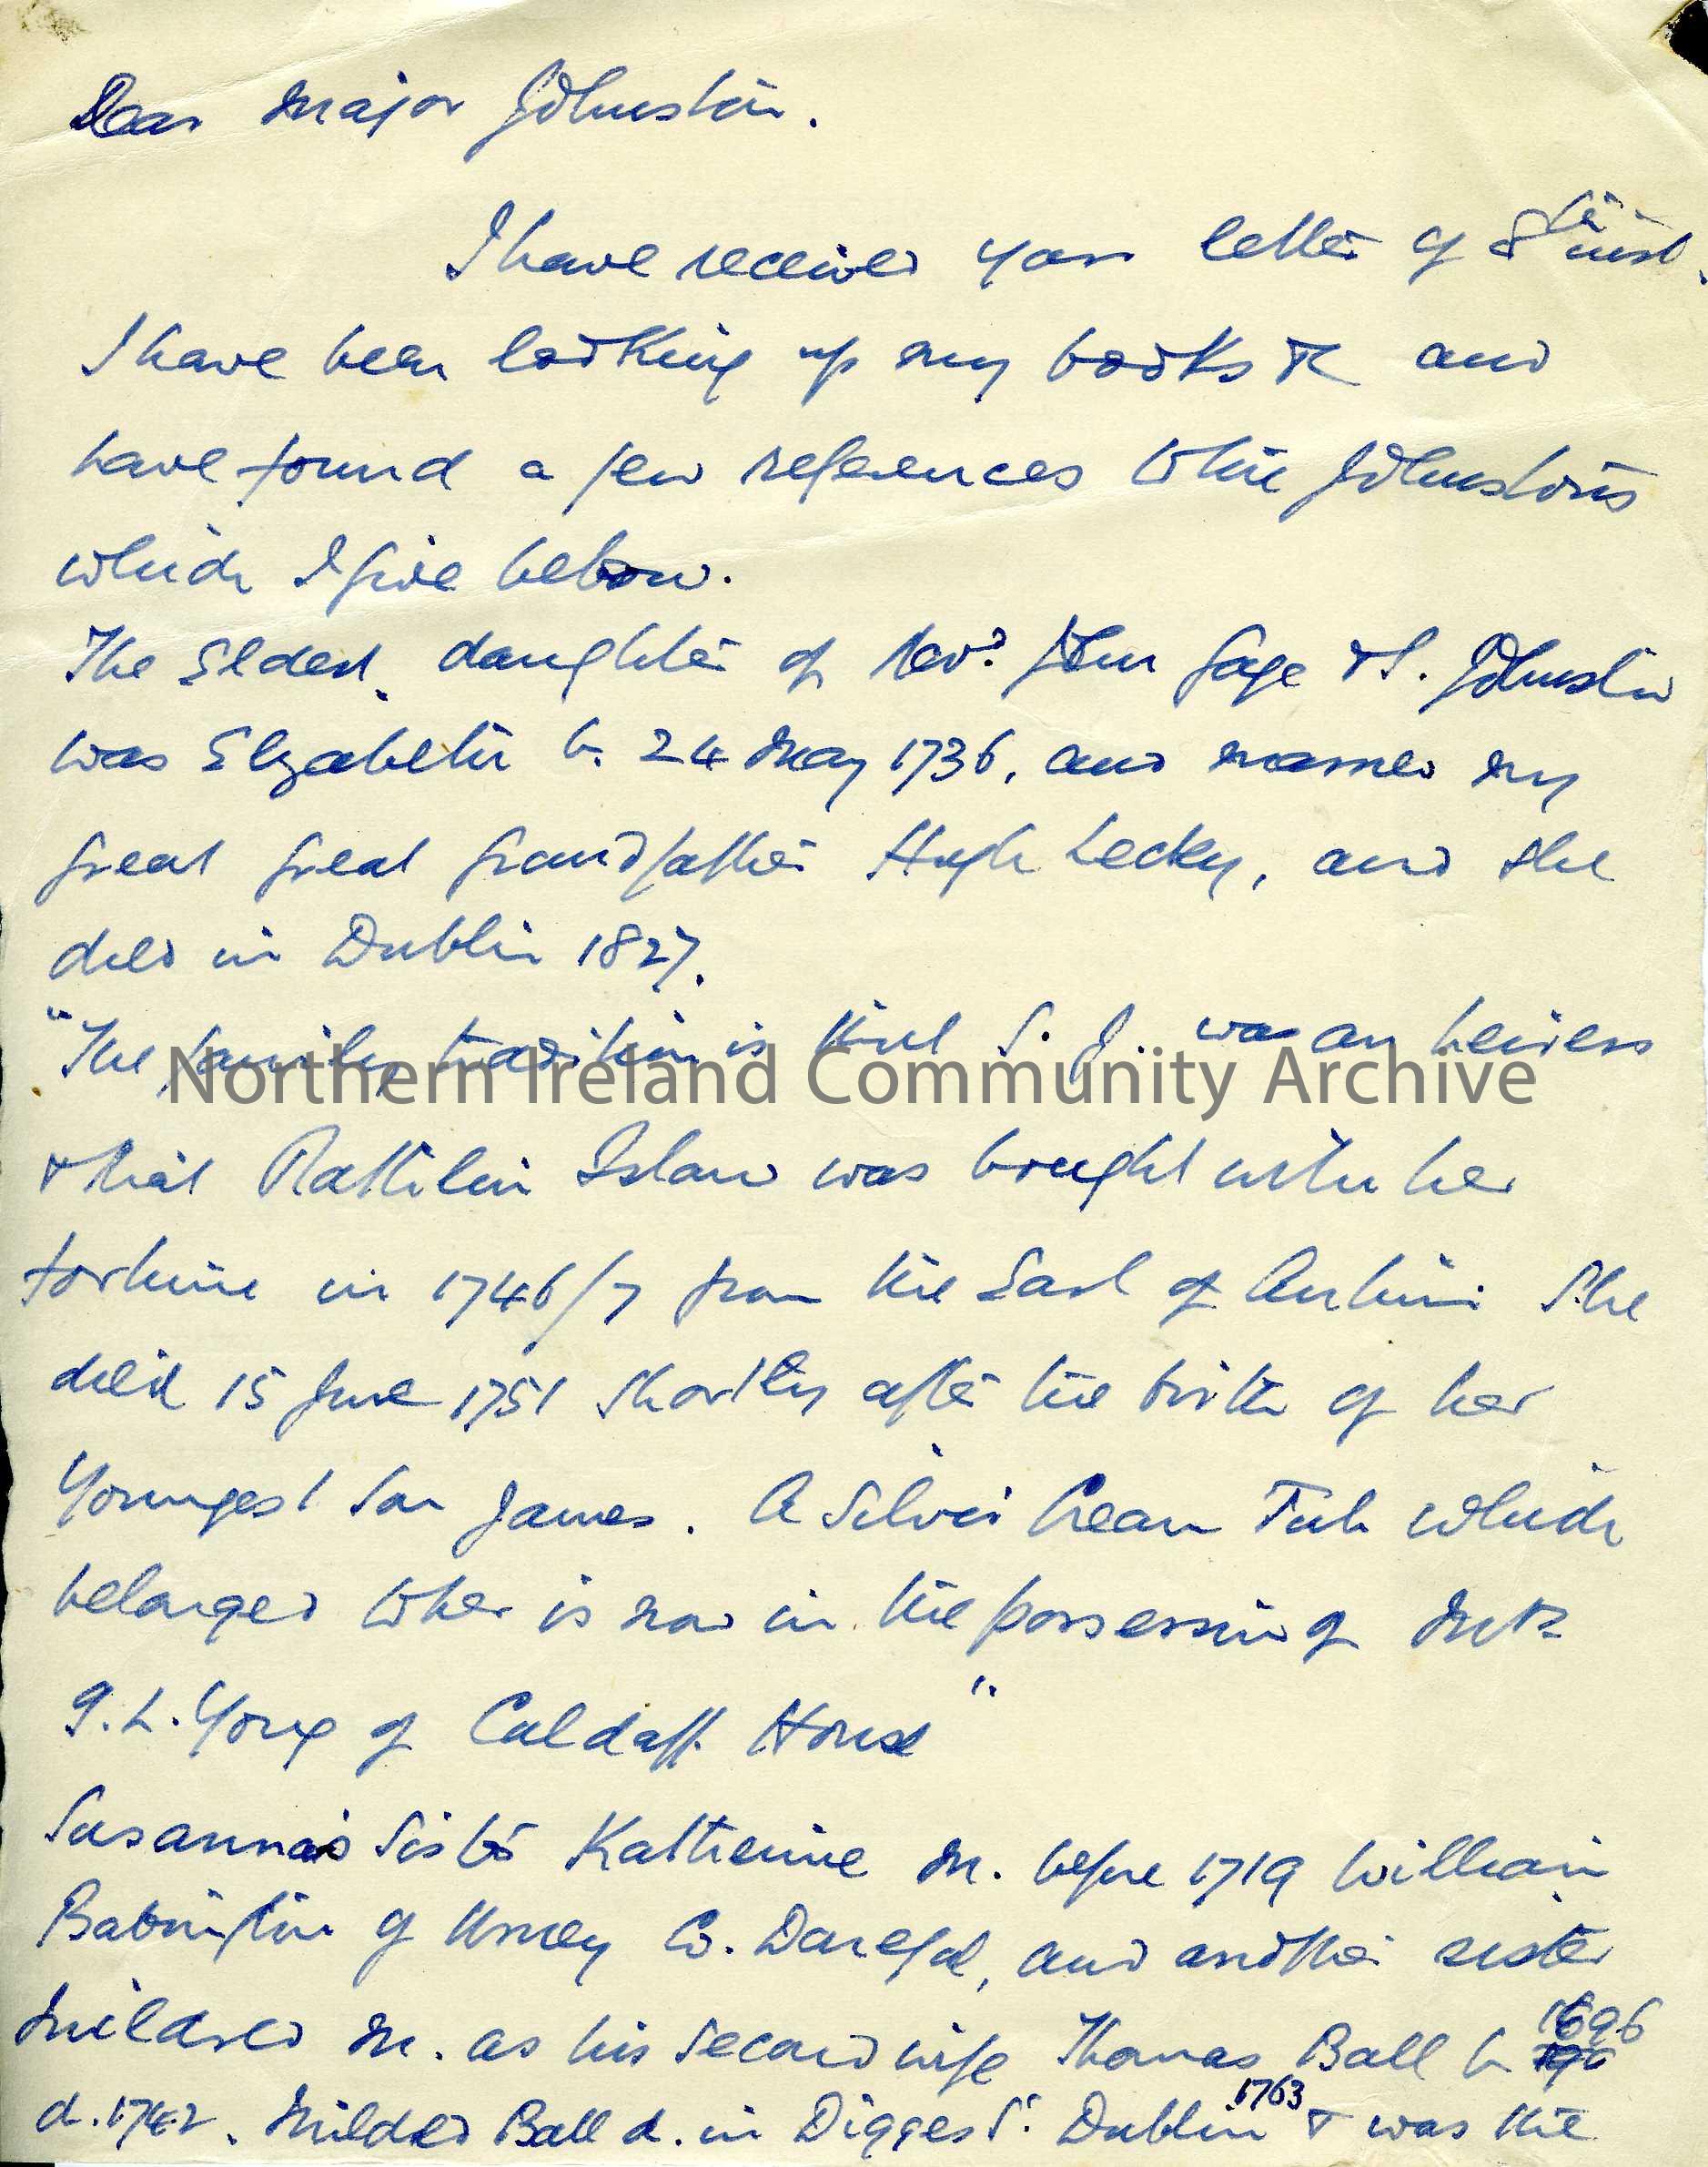 Dear Major Johnston.
I have received your letter of 8th inst.
I have been looking up my books &c and
have found a few references to the Johnstons
which I give below.
The Eldest daughter of Revd. John Gage & S. Johnston
was Elizabeth b. 24 May 1736, and married my
great great grandfather Hugh Lecky, and she
died in Dublin 1827.
"The family tradition is that S. J. was an heiress
Northern Ireland Community Archive
& that Rathlin Island was bought with her
fortune in 1746/7 from the Earl of Antrim. She
died 15 June 1751 shortly after the birth of her
Youngest Son James. A Silver Cream Tub which
belonged to her is now in the possession of Mrs
G. L. Young of Culdaff House"
Susanna's Sister Katherine m. before 1719 William
Babington of Urney Co. Donegal, and another sister
Mildred m. as his Second wife Thomas Ball b 1696
d. 1742. Mildred Ball d. in Digges St. Dublin 1763 & was the